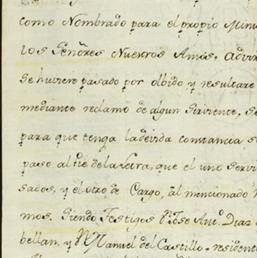 como Nombrado para el propio Minis
los Señores Nuestros Amos. Advir
se huviere pasado por olbido y resultare
mediante reclamo de algun Sirviente, se
para que tenga la devida constancia s
paso al pie de la Letra, que el uno servi
sados, y el otro de Cargo, al mencionado
mos. Siendo Testigos Dn. Jose Anto. Diaz
bellan, y Dn. Manuel del Castillo. residente